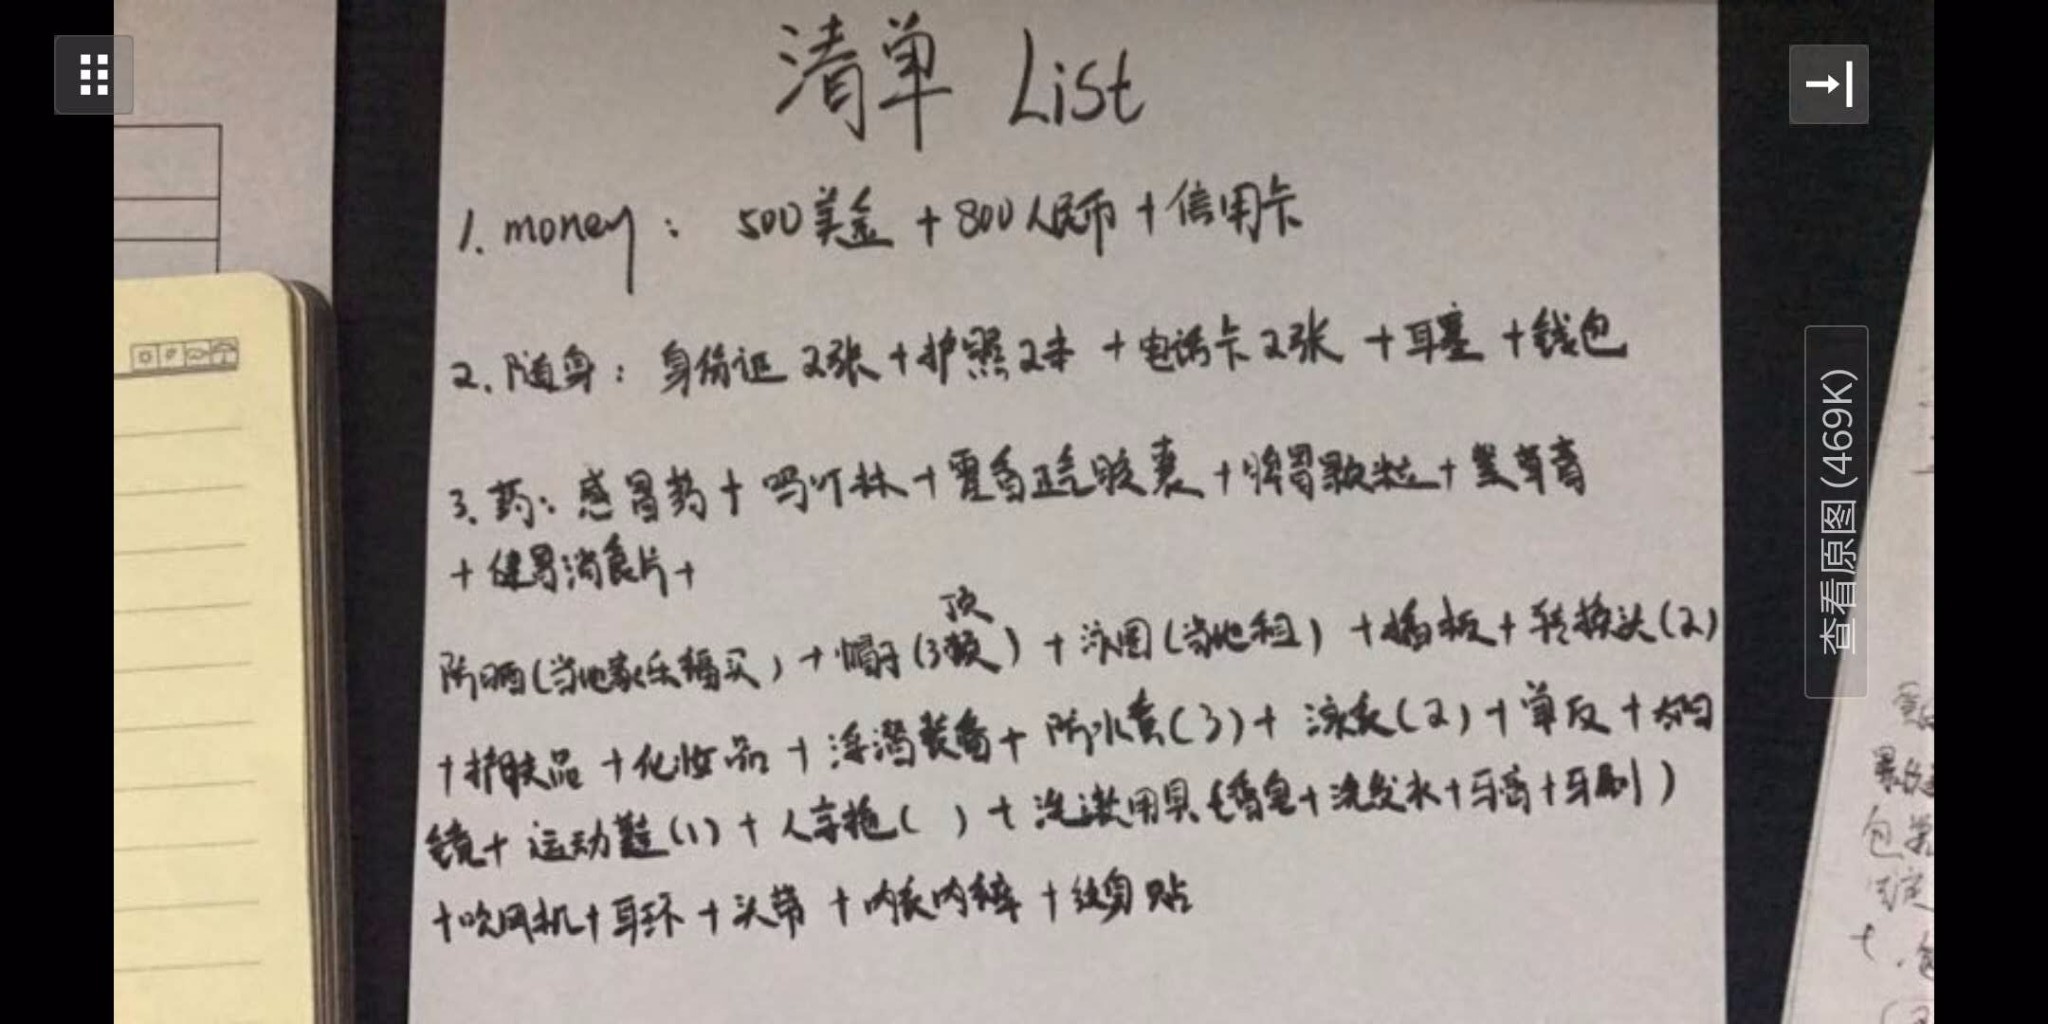 清单 List
1. money： 500美金 + 800人民币 + 信用卡
2. 随身： 身份证 2张 + 护照2本 + 电话卡2张 + 耳塞 + 钱包
3. 药： 感冒药 + 吗叮林 + 霍香正气胶囊 + 脾胃颗粒 + 皇草膏
+ 健胃消食片 +
顶
防晒(当地家乐福买) + 帽子(3顶) + 泳圈(当地租) + 插板 + 转换头(2)
+ 护肤品 + 化妆品 + 浮潜装备 + 防水套(3) + 泳衣(2) + 单反 + 太阳
镜 + 运动鞋(1) + 人字拖( ) + 洗漱用具(香皂 + 洗发水 + 牙膏 + 牙刷)
+ 吹风机 + 耳环 + 头带 + 内衣内裤 + 纹身贴
查看原图(469K)